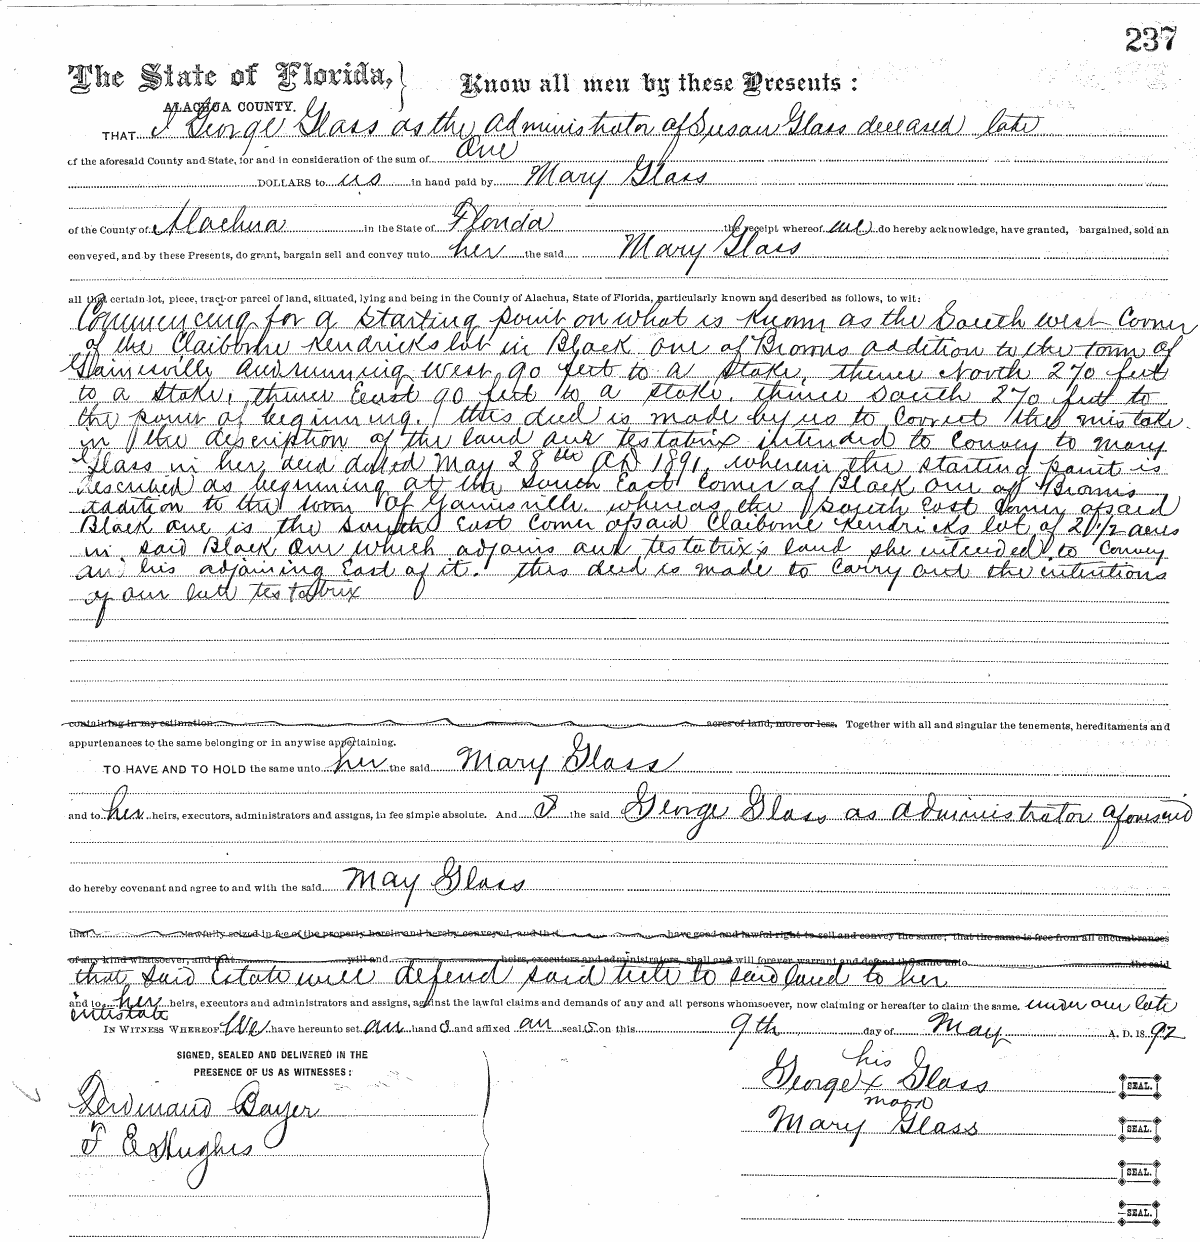 237
The State of Florida, Know all men by these Presents :
ALACHUA COUNTY.
THAT I George Glass as the Administrator of Susan Glass deceased late
of the aforesaid County and State, for and in consideration of the sum of One
DOLLARS to us in hand paid by Mary Glass
of the County of Alachua in the State of Florida the receipt whereof we do hereby acknowledge, have granted, bargained, sold an
conveyed, and by these Presents, do grant, bargain sell and convey unto her the said Mary Glass
all that certain lot, piece, tract or parcel of land, situated, lying and being in the County of Alachua, State of Florida, particularly known and described as follows, to wit:
Commencing for a starting point on what is known as the South west Corner
of the Claiborne Kendricks lot in Block one of Browns addition to the town of
Gainesville and running west 90 feet to a stake, thence North 270 feet
to a stake, thence East 90 feet to a stake, thence South 270 feet to
the point of beginning. this deed is made by us to Correct the mistake
in the description of the land our testatrix intended to Convey to Mary
Glass in her deed dated May 28th AD 1891, wherein the starting point is
described as beginning at the South East Corner of Block one of Browns
addition to the town of Gainesville. whereas the South East Corner of said
Block one is the South East Corner of said Claiborne Kendricks lot of 2 1/2 acres
in said Block One which adjoins our testatrix's land she intended to Convey
and his adjoining East of it. this deed is made to Carry out the intentions
of our late testatrix
containing in my estimation acres of land, more or less. Together with all and singular the tenements, hereditaments and
appurtenances to the same belonging or in anywise appertaining.
TO HAVE AND TO HOLD the same unto her the said Mary Glass
and to her heirs, executors, administrators and assigns, in fee simple absolute. And I the said George Glass as Administrator aforesaid
do hereby covenant and agree to and with the said May Glass
that lawfully seized in fee of the property herein and hereby conveyed, and that have good and lawful right to sell and convey the same; that the same is free from all encumbrances
of any kind whatsoever, and that will and heirs, executors and administrators, shall and will forever warrant and defend the same unto the said
that said Estate will defend said title to said land to her
and to her heirs, executors and administrators and assigns, against the lawful claims and demands of any and all persons whomsoever, now claiming or hereafter to claim the same. under our late
intestate
IN WITNESS WHEREOF We have hereunto set our hand s and affixed our seal s on this 9th day of May A. D. 18 92
SIGNED, SEALED AND DELIVERED IN THE
PRESENCE OF US AS WITNESSES:
Ferdinand Bayer
F E Hughes
his
George x Glass SEAL.
mark
Mary Glass SEAL.
SEAL.
SEAL.